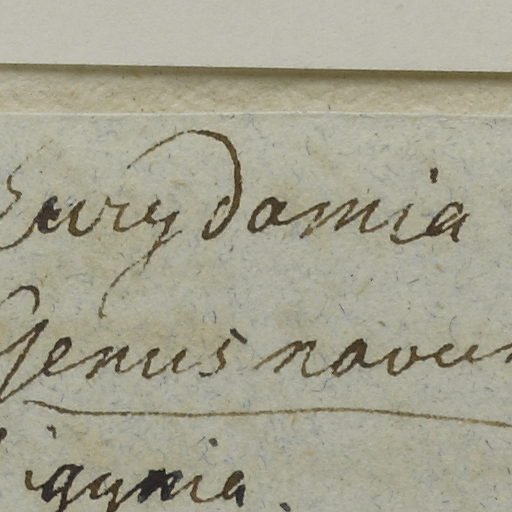 Eurydamia
Genus novu
igynia.